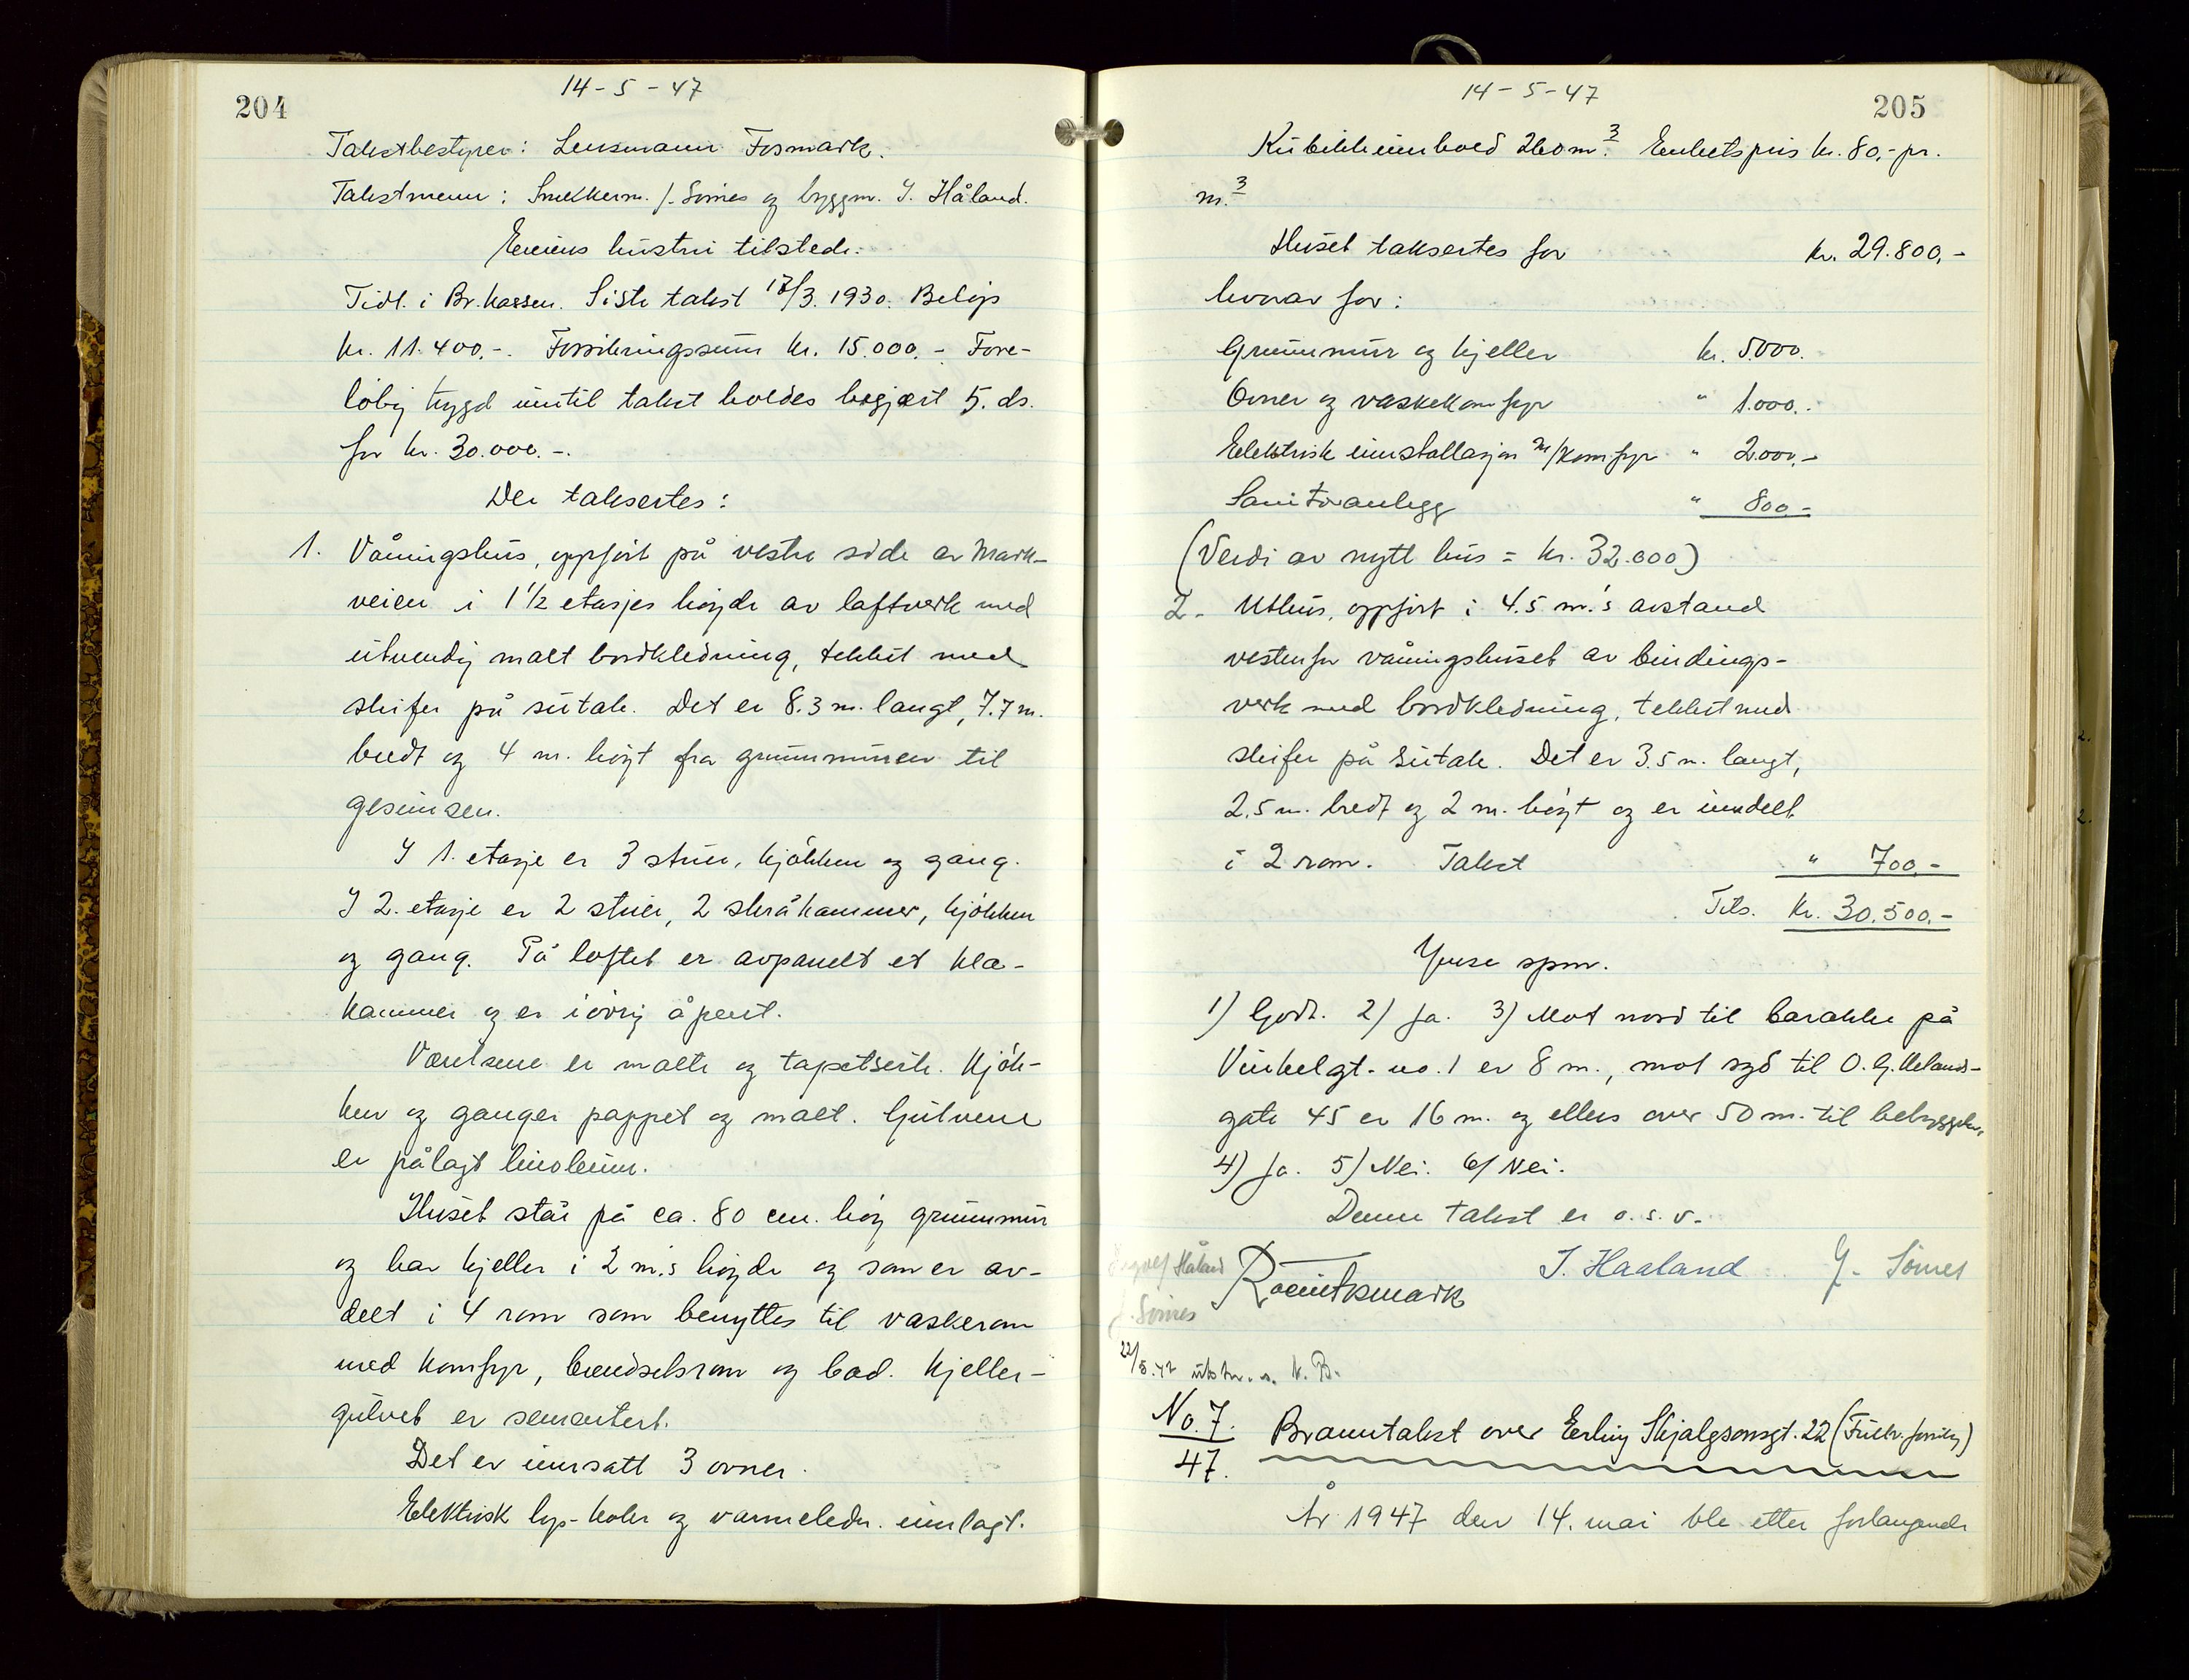 204
14-5-47
Takstbestyrer: Lensmann Fosmark.
Takstmenn: Snekkerm. J. Sømes og byggm. I. Håland.
Eierens hustru tilstede.
Tidl. i Br.kassen. Siste takst 17/3. 1930. Beløp
kr. 11.400.-. Forsikringssum kr. 15.000.- Fore-
løbig trygd inntil takst holdes begjært 5. ds.
for kr. 30.000.-.
Der taksertes:
1. Våningshus, oppført på vestre side av Mark-
veien i 1 1/2 etasjes høyde av laftverk med
utvendig malt bordkledning, tekket med
skifer på sutak. Det er 8.3 m. langt, 7.7 m.
bredt og 4 m. høyt fra grunnmuren til
gesimsen.
I 1. etasje er 3 stuer, kjøkken og gang.
I 2. etasje er 2 stuer, 2 skråkammer, kjøkken
og gang. På loftet er avpanelt et kle-
kammer og er i øvrig åpent.
Værelsene er malte og tapetserte. Kjøk-
ken og ganger pappet og malt. Gulvene
er pålagt linoleum.
Huset står på ca. 80 cm. høy grunnmur
og har kjeller i 2 m.s høyde og som er av-
delt i 4 rom som benyttes til vaskerom
med komfyr, brendselsrom og bad. Kjeller-
gulvet er sementert.
Det er innsatt 3 ovner.
Elektrisk lys- koke og varmeledn. innlagt.
14-5-47
205
Kubikkinnhold 260 m.3 Enhetspris kr. 80,- pr.
m.3
Huset taksertes for kr. 29.800,-
hvorav for:
Grunnmur og kjeller kr. 5.000.
Ovner og vaskekomfyr " 1.000.
Elektrisk innstallasjon m/komfyr " 2.000,-
Sanitæranlegg " 800-
(Verdi av nytt hus = kr. 32.000)
2. Uthus, oppført i 4.5 m.'s avstand
vestenfor våningshuset av bindings-
verk med bordkledning, tekket med
skifer på sutak. Det er 3.5 m. langt,
2.5 m. bredt og 2 m. høyt og er inndelt
i 2 rom. Takst " 700,-
Tils. Kr. 30.500.-
Ynse spm.
1) Godt. 2) Ja. 3) Mot nord til barakke på
Vinkelgt. no. 1 er 8 m., mot syd til O. G. Melands-
gate 45 er 16 m. og ellers over 50 m. til bebyggelse.
4) Ja. 5) Nei. 6) Nei.
Denne takst er o.s.v.
Håland
J. Sømes
I. Haaland J. Sømes
22/5.47 utskr. s. N. B.
No. 7.
47.
Branntakst over Erling Skjalgsonsgt. 22
År 1947 den 14. mai ble etter forlangende